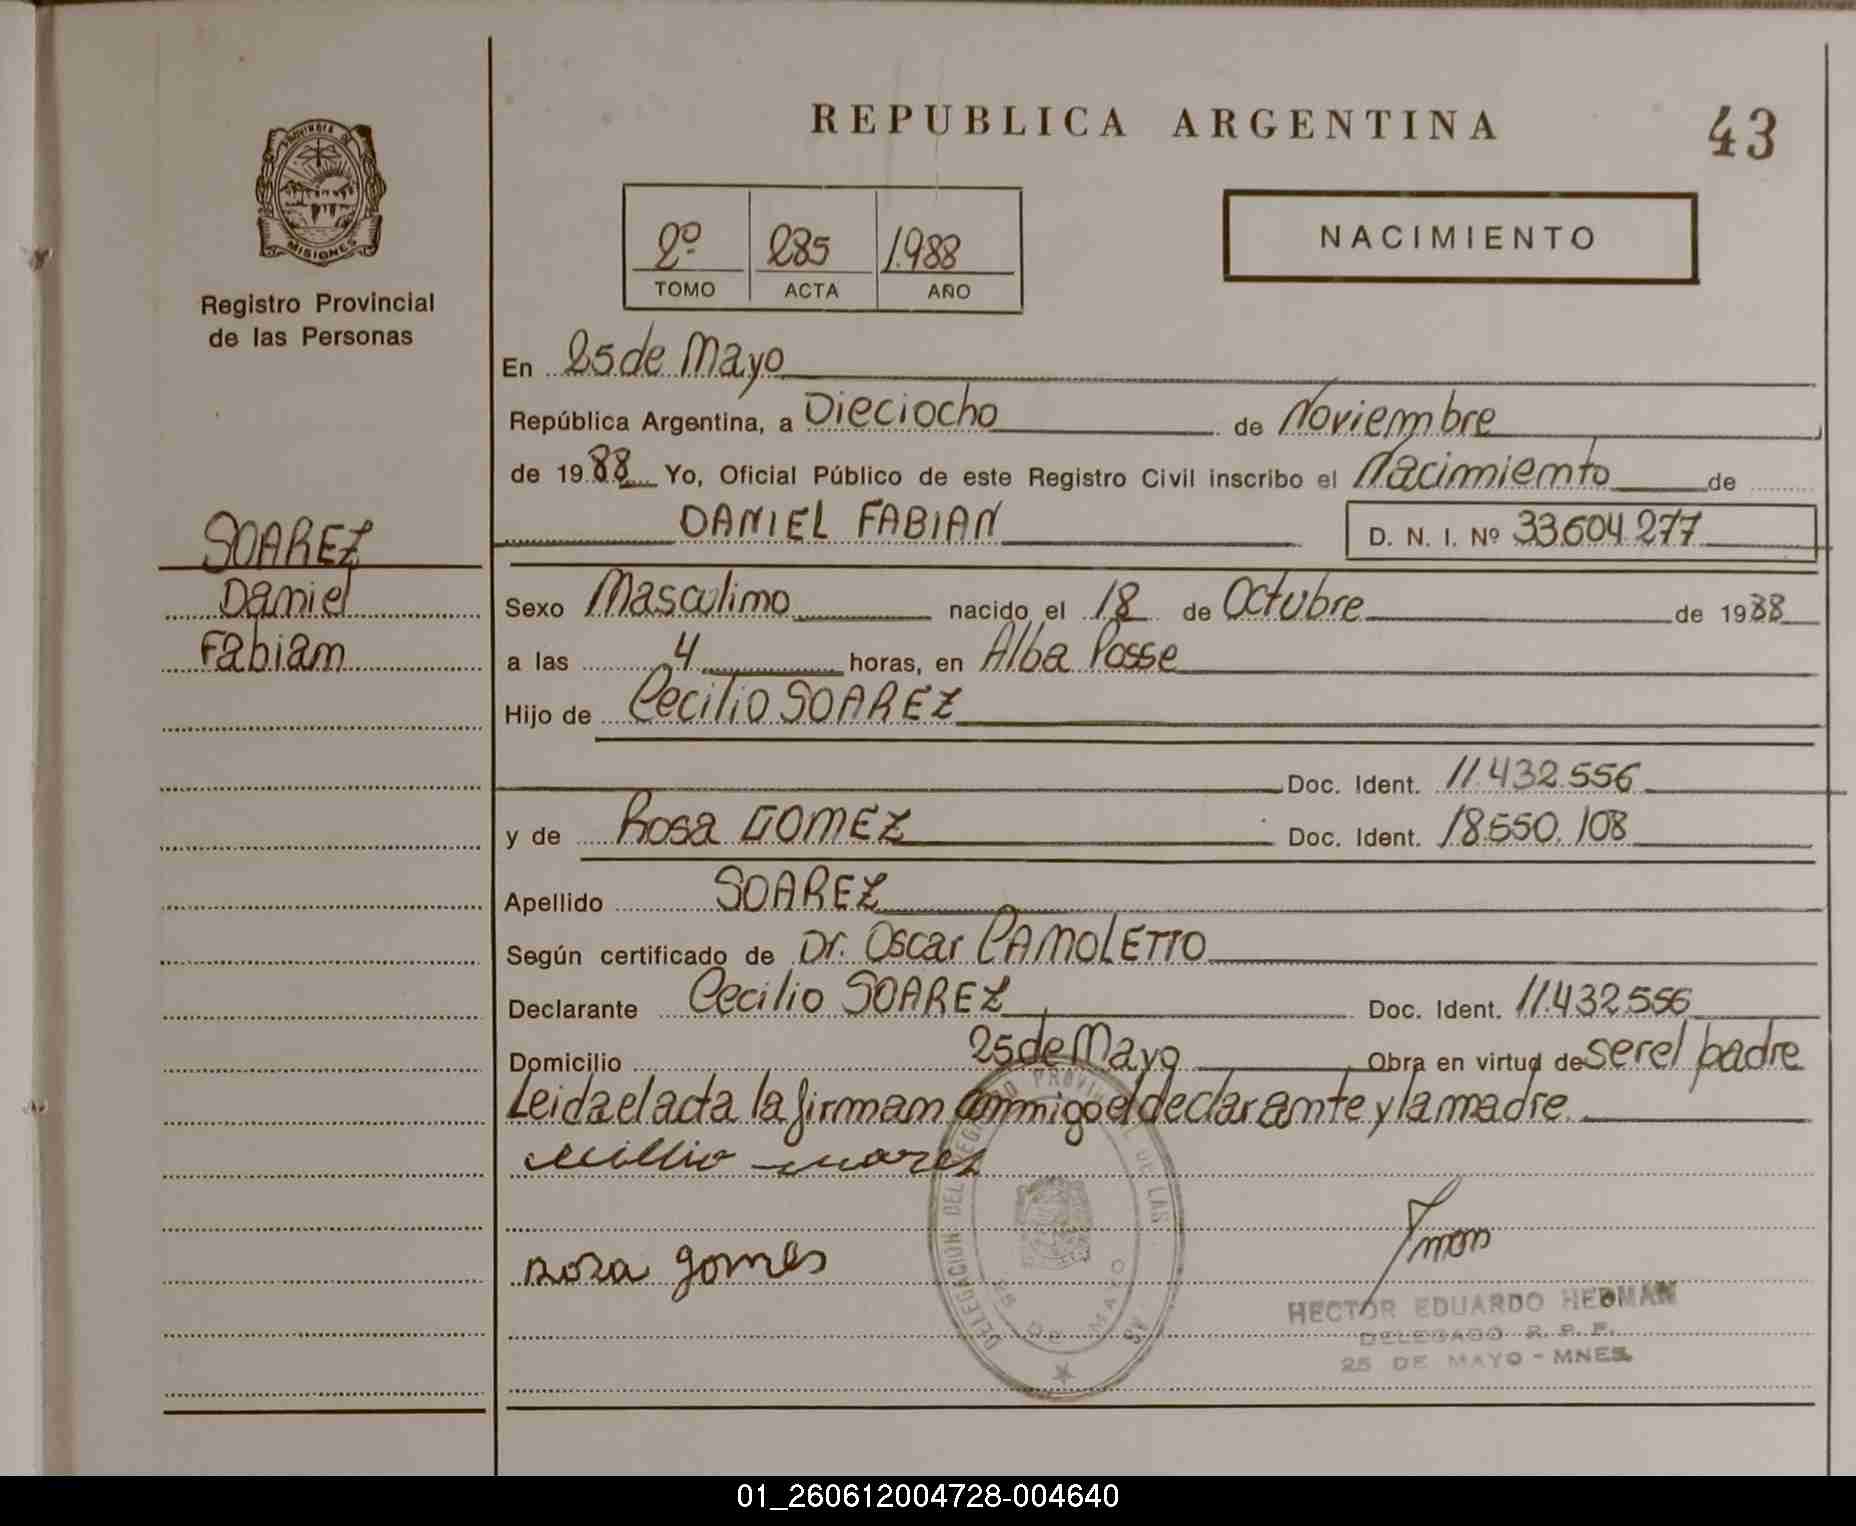 REPUBLICA ARGENTINA
43
PROVINCIA DE
MISIONES
Registro Provincial
de las Personas
2º 285 1.988
TOMO ACTA AÑO
NACIMIENTO
En 25 de Mayo
República Argentina, a Dieciocho de Noviembre
de 1988 Yo, Oficial Público de este Registro Civil inscribo el Nacimiento de
DANIEL FABIAN D. N. I. Nº 33.604.277
SOAREZ
Daniel
Fabian
Sexo Masculino nacido el 18 de Octubre de 1988
a las 4 horas, en Alba Posse
Hijo de Cecilio SOAREZ
Doc. Ident. 11.432.556
y de Rosa GOMEZ Doc. Ident. 18.550.108
Apellido SOAREZ
Según certificado de Dr. Oscar CAMOLETTO
Declarante Cecilio SOAREZ Doc. Ident. 11.432.556
Domicilio 25 de Mayo Obra en virtud de ser el padre
Leida el acta la firman conmigo el declarante y la madre.
rosa gomes
DELEGACION DEL REGISTRO PROVINCIAL DE LAS
25 DE MAYO
HECTOR EDUARDO HEDMAN
DELEGADO R. P. P.
25 DE MAYO - MNES.
01_260612004728-004640